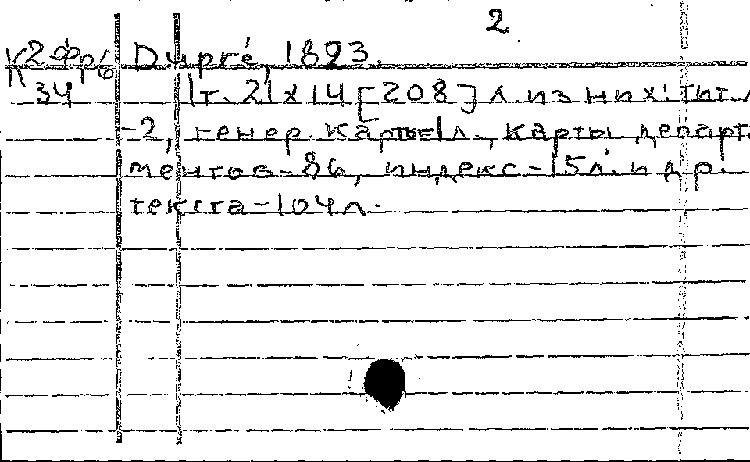 2
К2Фр6 Dupré, 1823.
34 1т. 21х14 [208] л. из них: тит. л.
-2, генер. карты-1л., карты департ
ментов-86, индекс-15л. и др.
текста-104л.